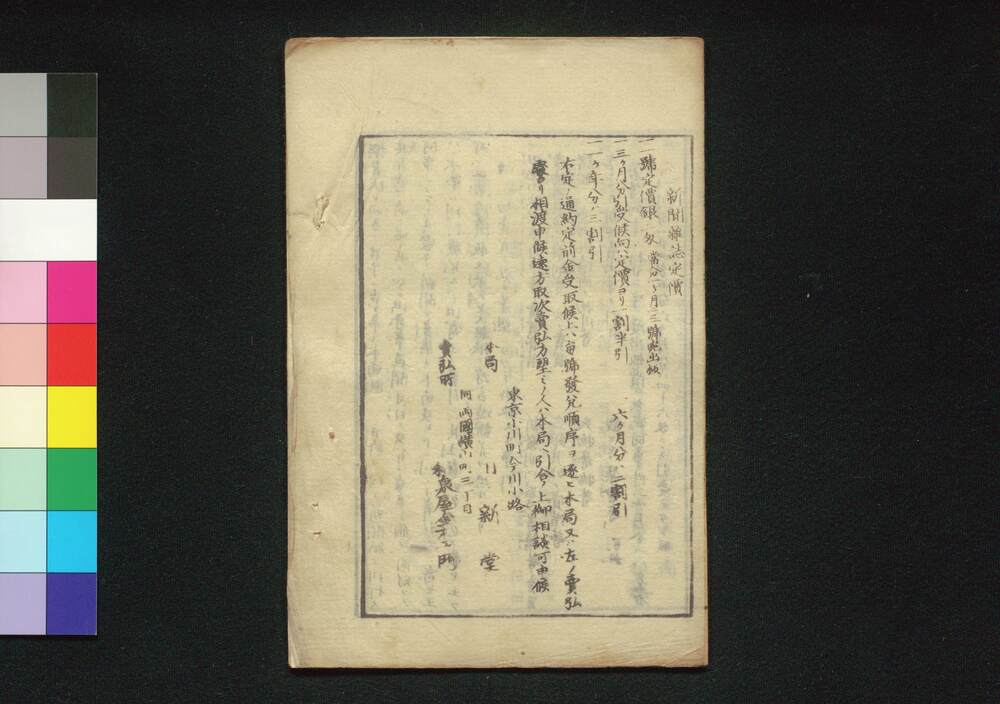 新聞雜誌定價
一一號定價銀一匁 當分一ヶ月ニ三號ツヽ出板
一三ヶ月分引受候向ハ定價ヨリ一割半引 六ヶ月分ハ二割引
一一ヶ年分ハ三割引
右定ノ通約定前金受取候上ハ每號發兌順序ヲ逐ヒ本局又ハ左ノ賣弘
所ヨリ相渡申候遠方取次賣弘方望ミノ人ハ本局ヘ引合ノ上御相談可申候
東京小川町今川小路
本局 日新堂
同兩國橫山町三丁目
賣弘所 和泉屋金右衛門